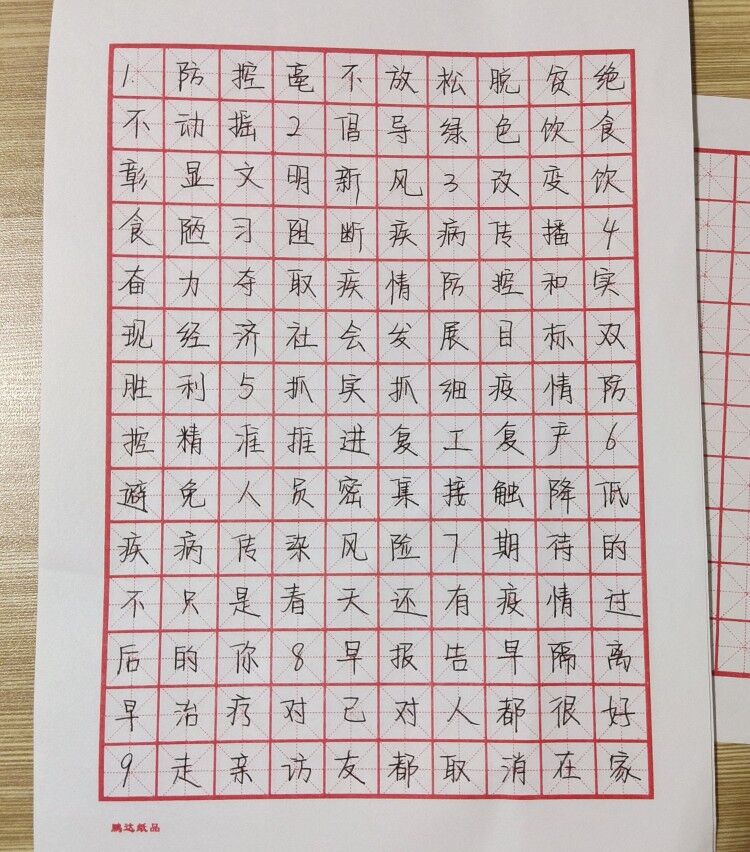 1.防控毫不放松脱贫绝
不动摇2倡导绿色饮食
彰显文明新风3改变饮
食陋习阻断疾病传播4
奋力夺取疾情防控和实
现经济社会发展目标双
胜利5抓实抓细疫情防
控精准推进复工复产6
避免人员密集接触降低
疾病传染风险7期待的
不只是春天还有疫情过
后的你8早报告早隔离
早治疗对己对人都很好
9走亲访友都取消在家
鹏达纸品